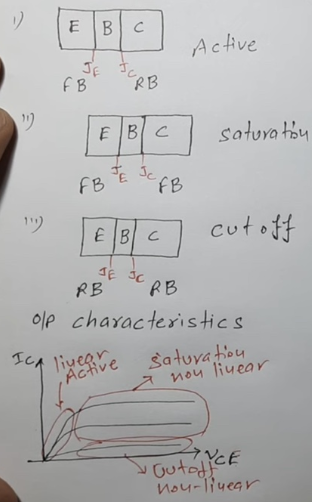 i) E B C
Active
JE JC
FB RB
ii) E B C
saturation
JE JC
FB FB
iii) E B C
cutoff
JE JC
RB RB
O/P characteristics
IC linear Active
saturation
non linear
VCE
Cutoff
non-linear